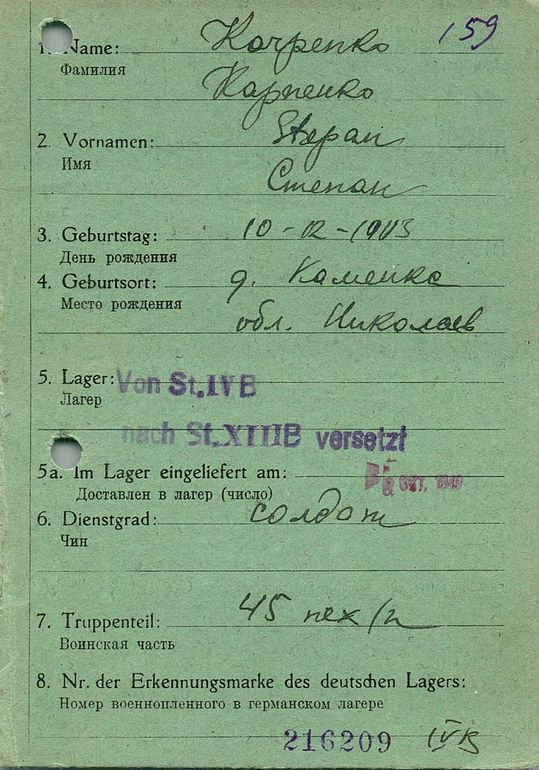 159
1. Name: Karpenko
Фамилия
Карпенко
2. Vornamen: Stepan
Имя
Степан
3. Geburtstag: 10-12-1903
День рождения
4. Geburtsort: д. Каменка
Место рождения
обл. Николаев
5. Lager: Von St.IVB
Лагер
nach St.XIIIB versetzt
5a. Im Lager eingeliefert am:
Доставлен в лагер (число)
6. Dienstgrad: солдат
Чин
7. Truppenteil: 45 пех/п
Воинская часть
8. Nr. der Erkennungsmarke des deutschen Lagers:
Номер военнопленного в германском лагере
216209 IVB